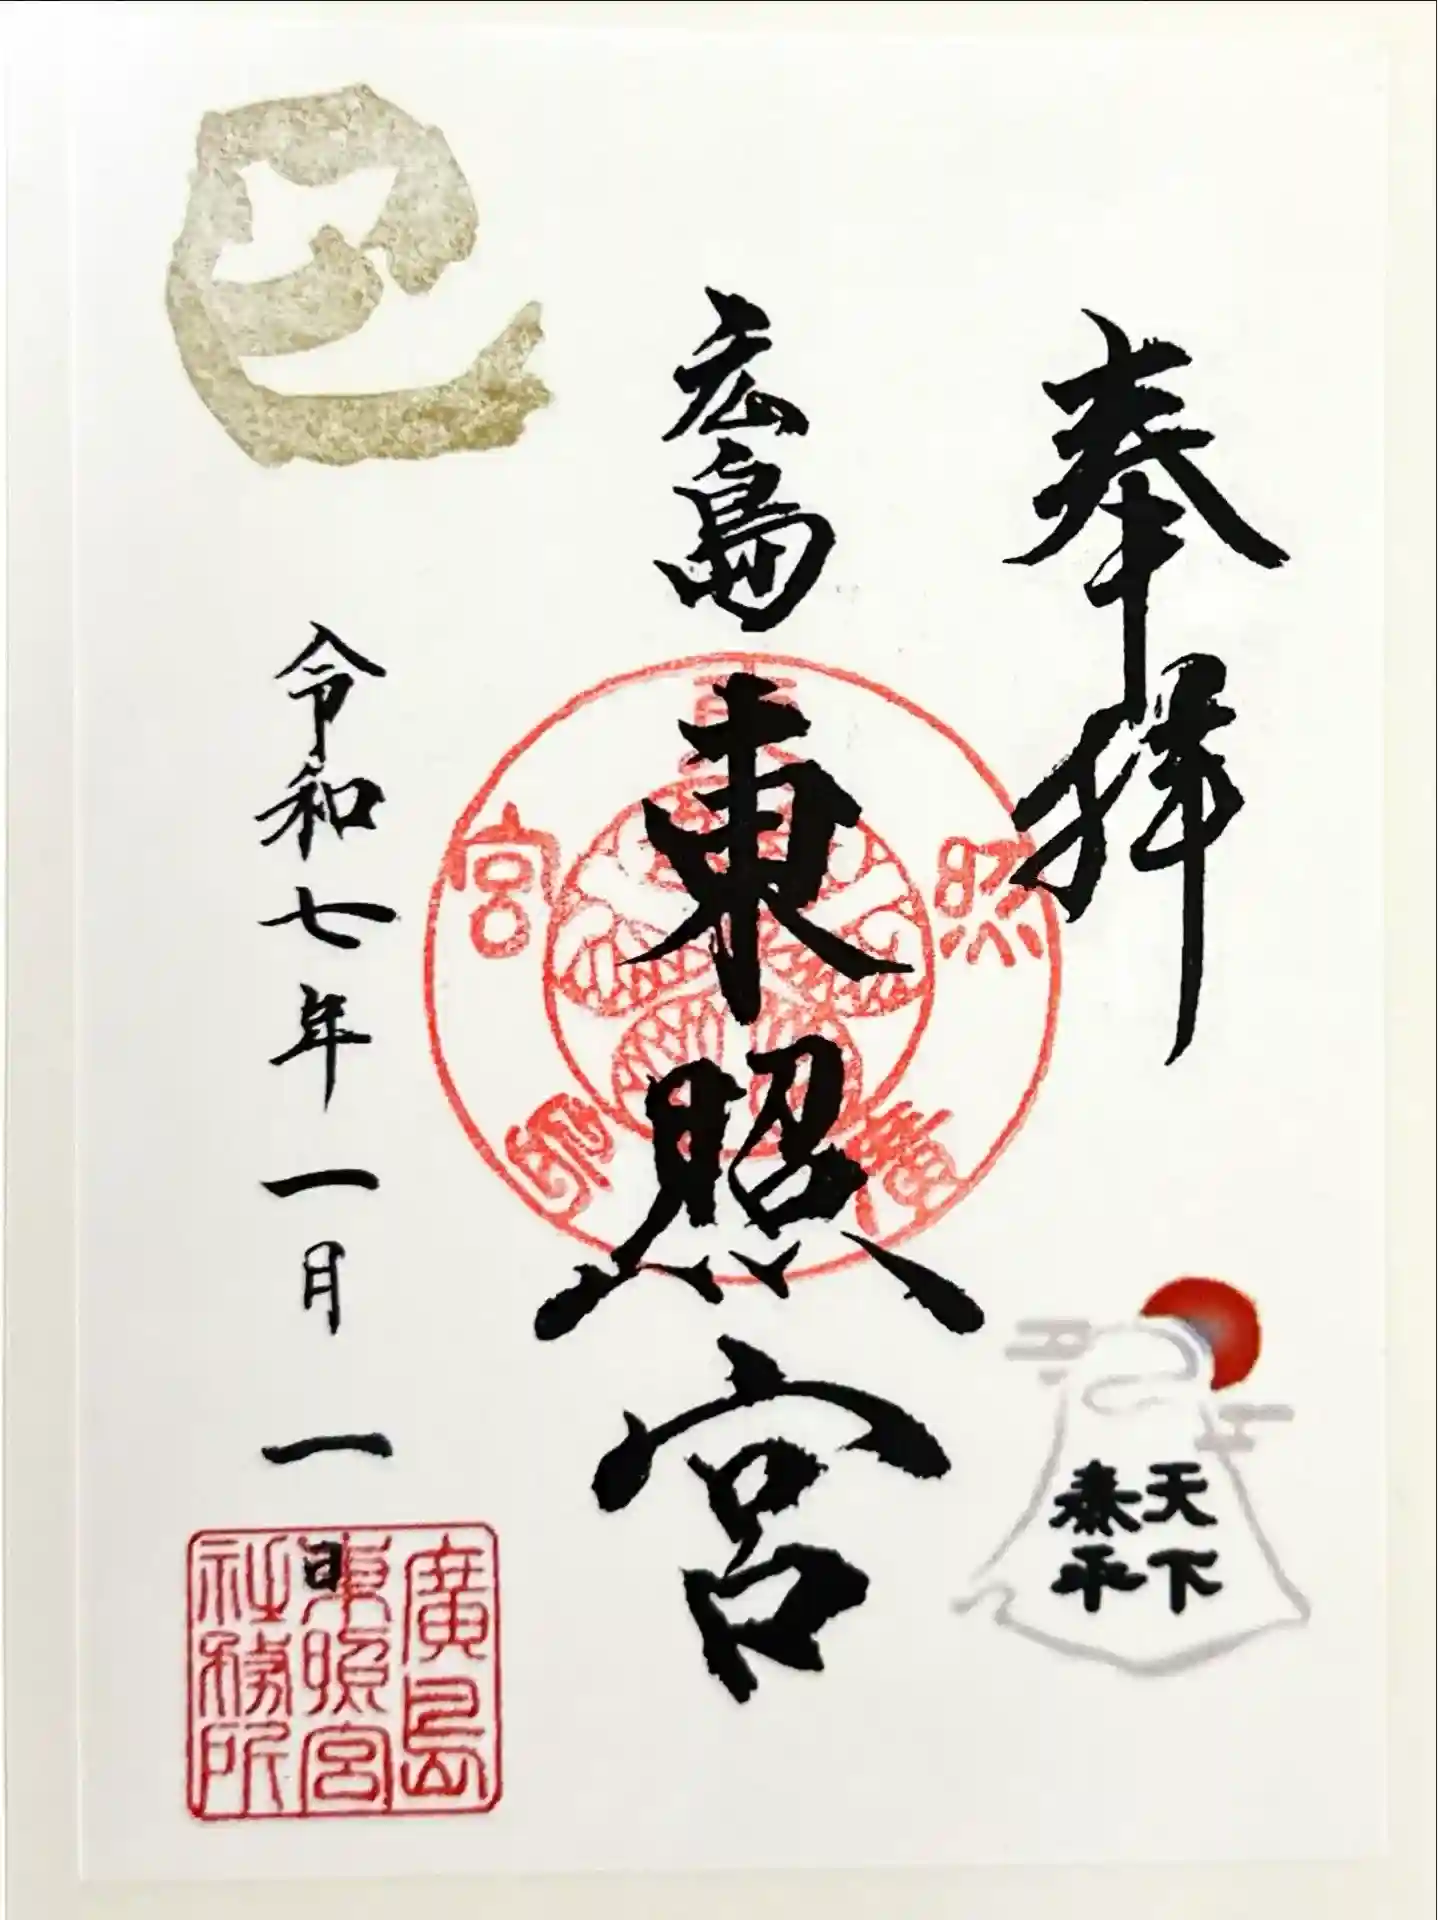 奉拝
天下
泰平
広島
東照宮
東照宮廣島
巳
令和七年一月一日
廣島
東照宮
社務所